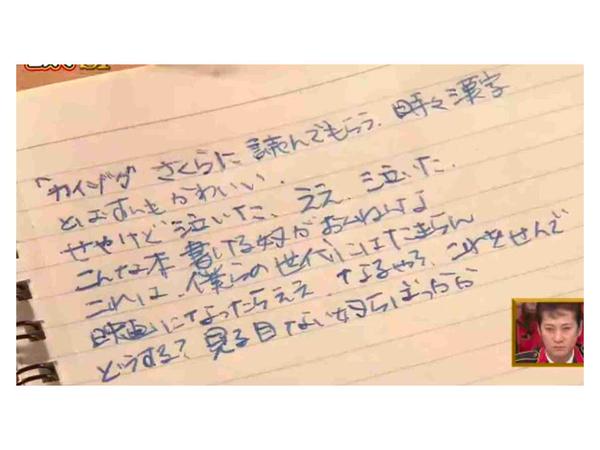 「カインドダ」 さくらに 読んでもらう. 時々漢字
とばすいもかわいい.
せやけど 泣いた. ええ. 泣いた.
こんな本 書ける奴がおんねんな
これは. 僕らの世代にはたまらん
映画になったらええ. なるやろ. これをせんで
どうする? 見る目ない奴らばっかか